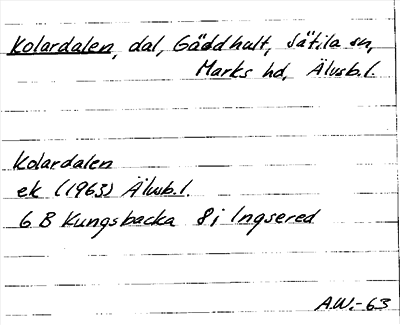 Kolardalen, dal, Gäddhult, Sätila sn,
Marks hd, Älvsb.l.
Kolardalen
ek (1963) Älvsb.l.
6 B Kungsbacka 8 i Ingsered
A.W.-63